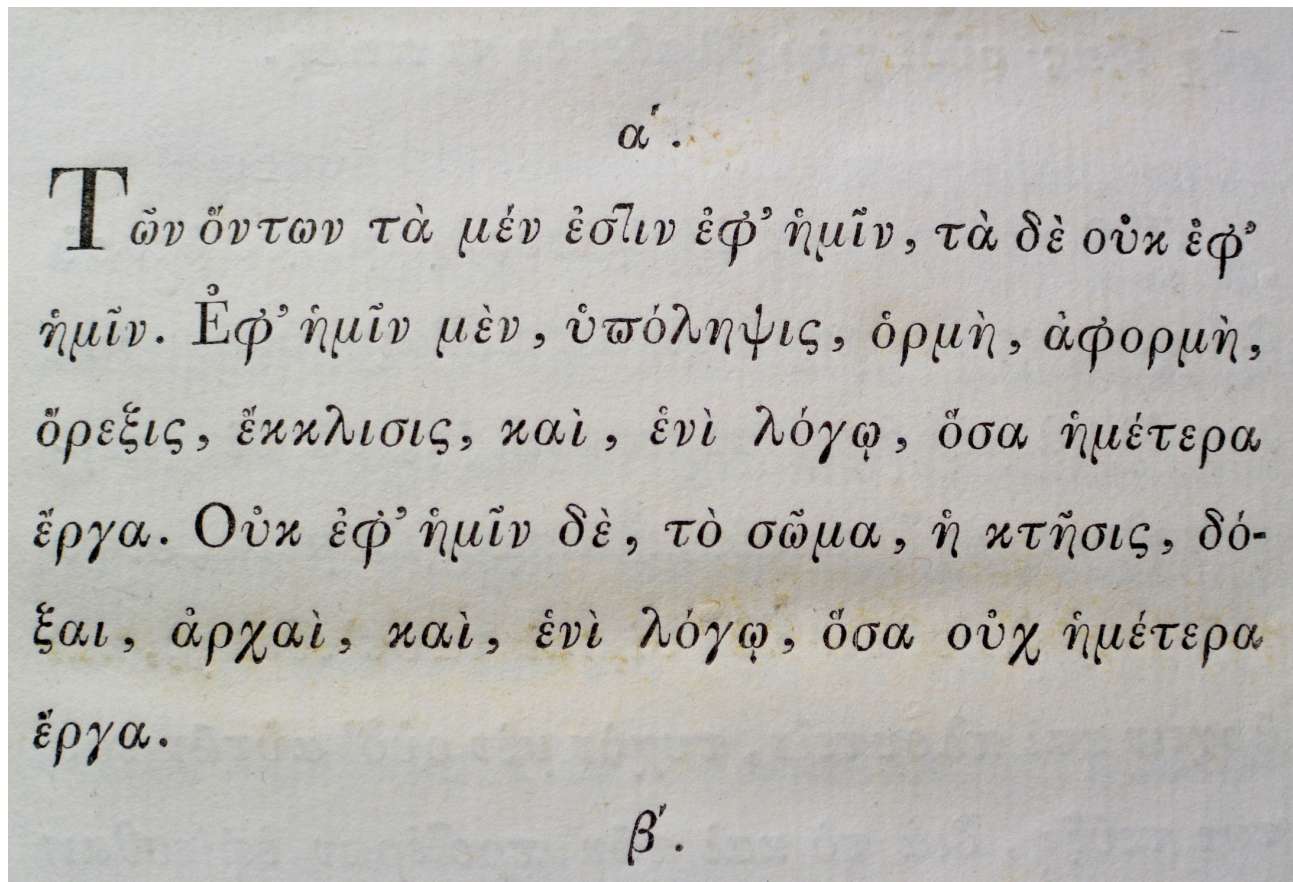 α΄.
Τῶν ὄντων τὰ μέν ἐστιν ἐφ’ ἡμῖν, τὰ δὲ οὐκ ἐφ’
ἡμῖν. Ἐφ’ ἡμῖν μὲν, ὑπόληψις, ὁρμὴ, ἀφορμὴ,
ὄρεξις, ἔκκλισις, καὶ, ἑνὶ λόγῳ, ὅσα ἡμέτερα
ἔργα. Οὐκ ἐφ’ ἡμῖν δὲ, τὸ σῶμα, ἡ κτῆσις, δό-
ξαι, ἀρχαὶ, καὶ, ἑνὶ λόγῳ, ὅσα οὐχ ἡμέτερα
ἔργα.
β΄.